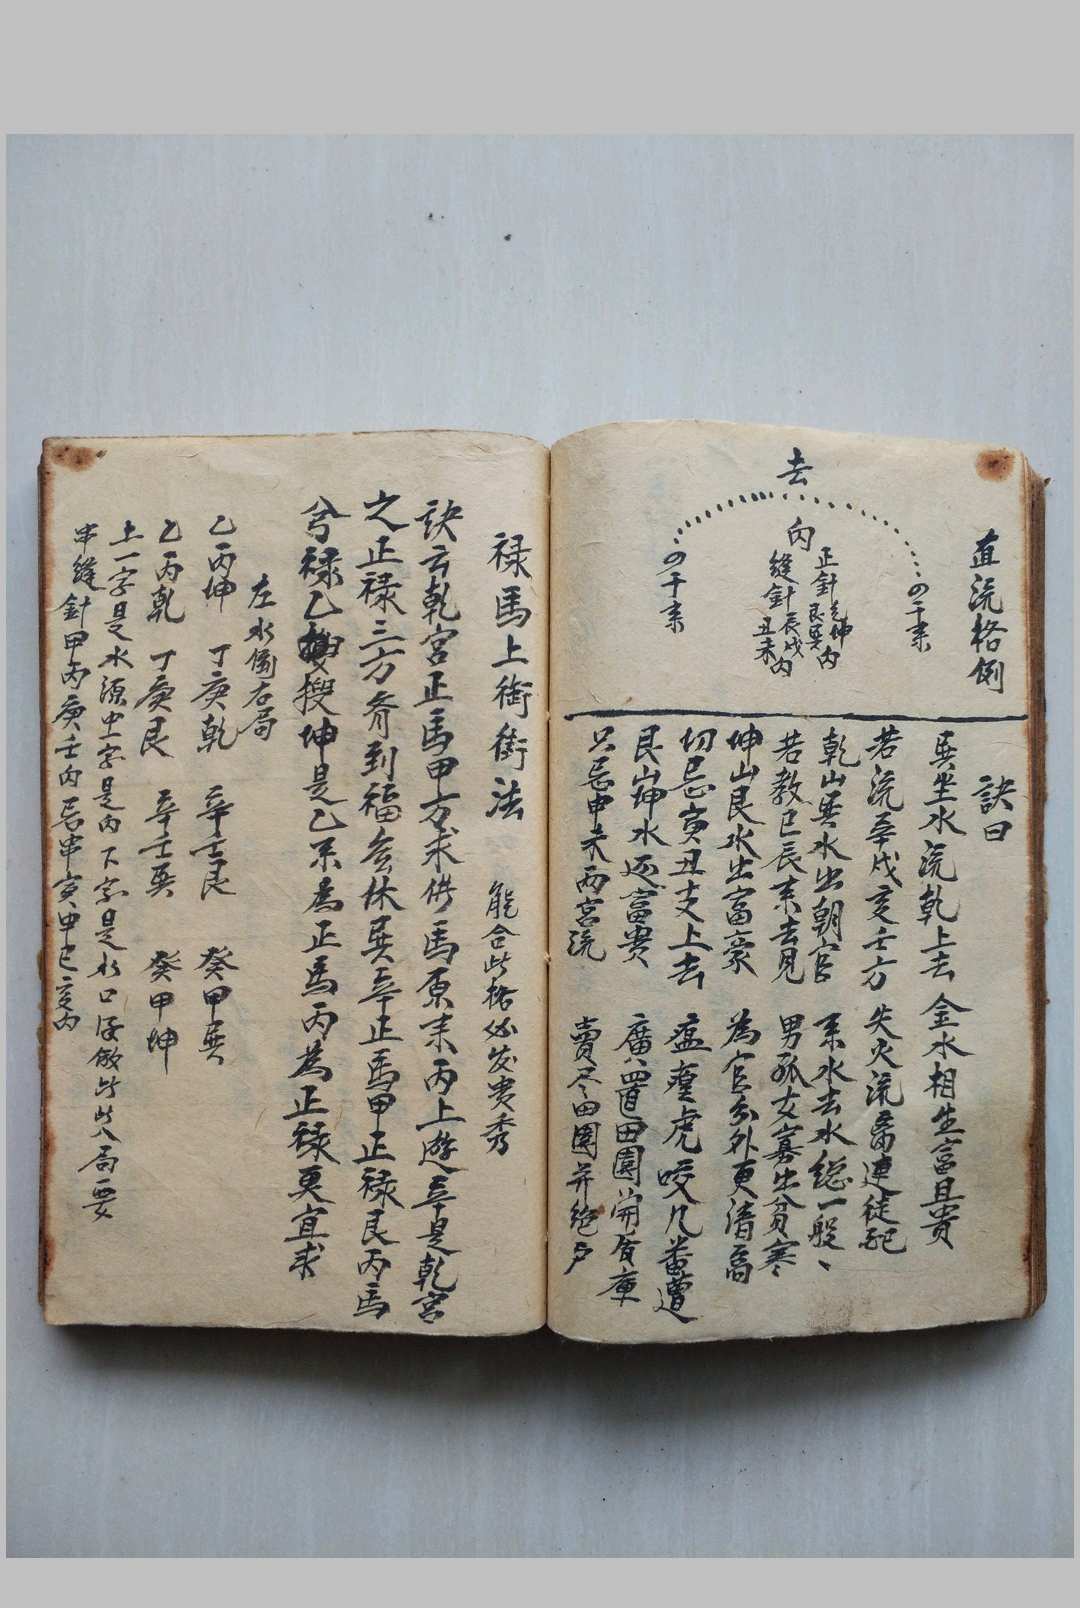 直流格例
去
内
正針乾坤艮巽内
縫針辰戌丑未内
訣曰
巽坐水流乾上去 金水相生富且貴
若流辛戌亥壬方 失火流畜連徒配
乾山巽水出朝官 来水去水總一般
若教巳辰来去見 男孤女寡出貧寒
坤山艮水出富豪 為官分外更清高
切忌寅丑支上去 瘟㾮虎咬几番遭
艮山坤水逐富貴 廣置田園開庫
只忌申未两宮流 賣尽田園并絶户
禄馬上街衙法 能合此格必发贵秀
訣云乾宮正馬甲方求供馬原来丙上遊辛是乾宮
之正禄三方齐到福𠫭休巽辛正馬甲正禄艮丙馬
兮禄乙搜坤是乙禾為正馬丙為正禄更宜求
左水倒右局
乙丙坤 丁庚乾 辛壬艮 癸甲巽
乙丙乾 丁庚艮 辛壬巽 癸甲坤
上一字是水源中字是内下字是水口仔做此八局要
串縫針甲丙庚壬内忌串寅申巳亥内